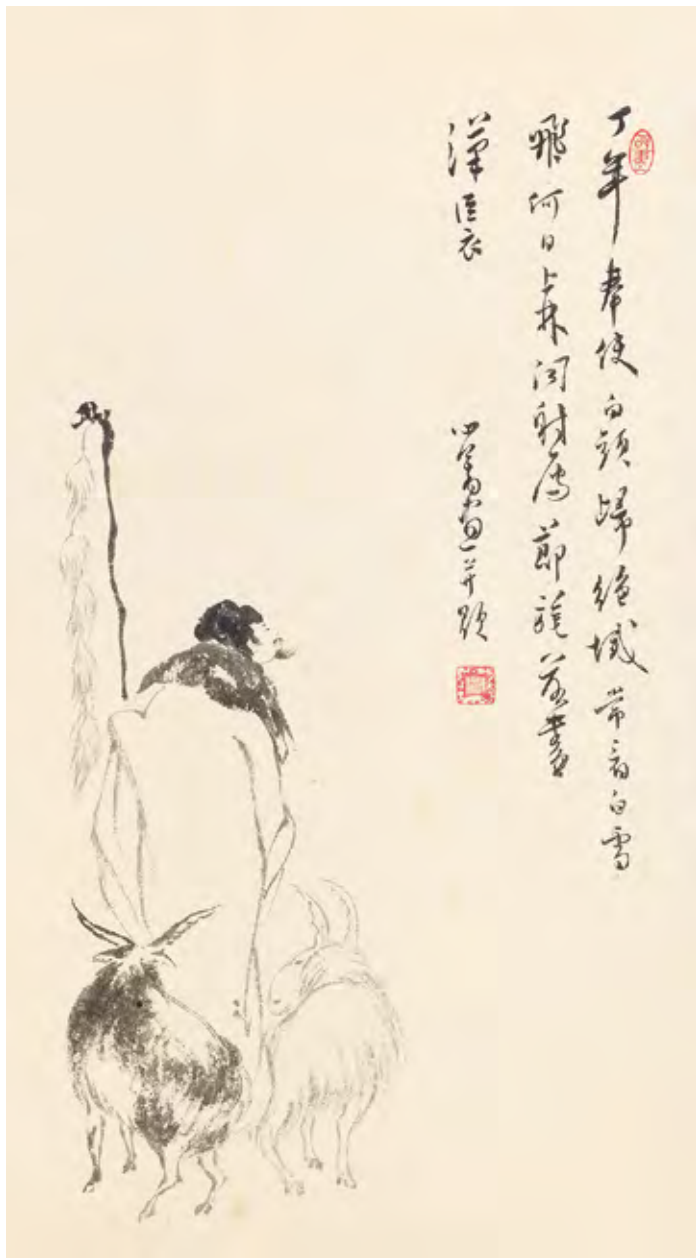 丁年奉使白頭歸絕域常看白雪
飛何日上林聞射雁節旄落盡
漢臣衣
心畬畫并題